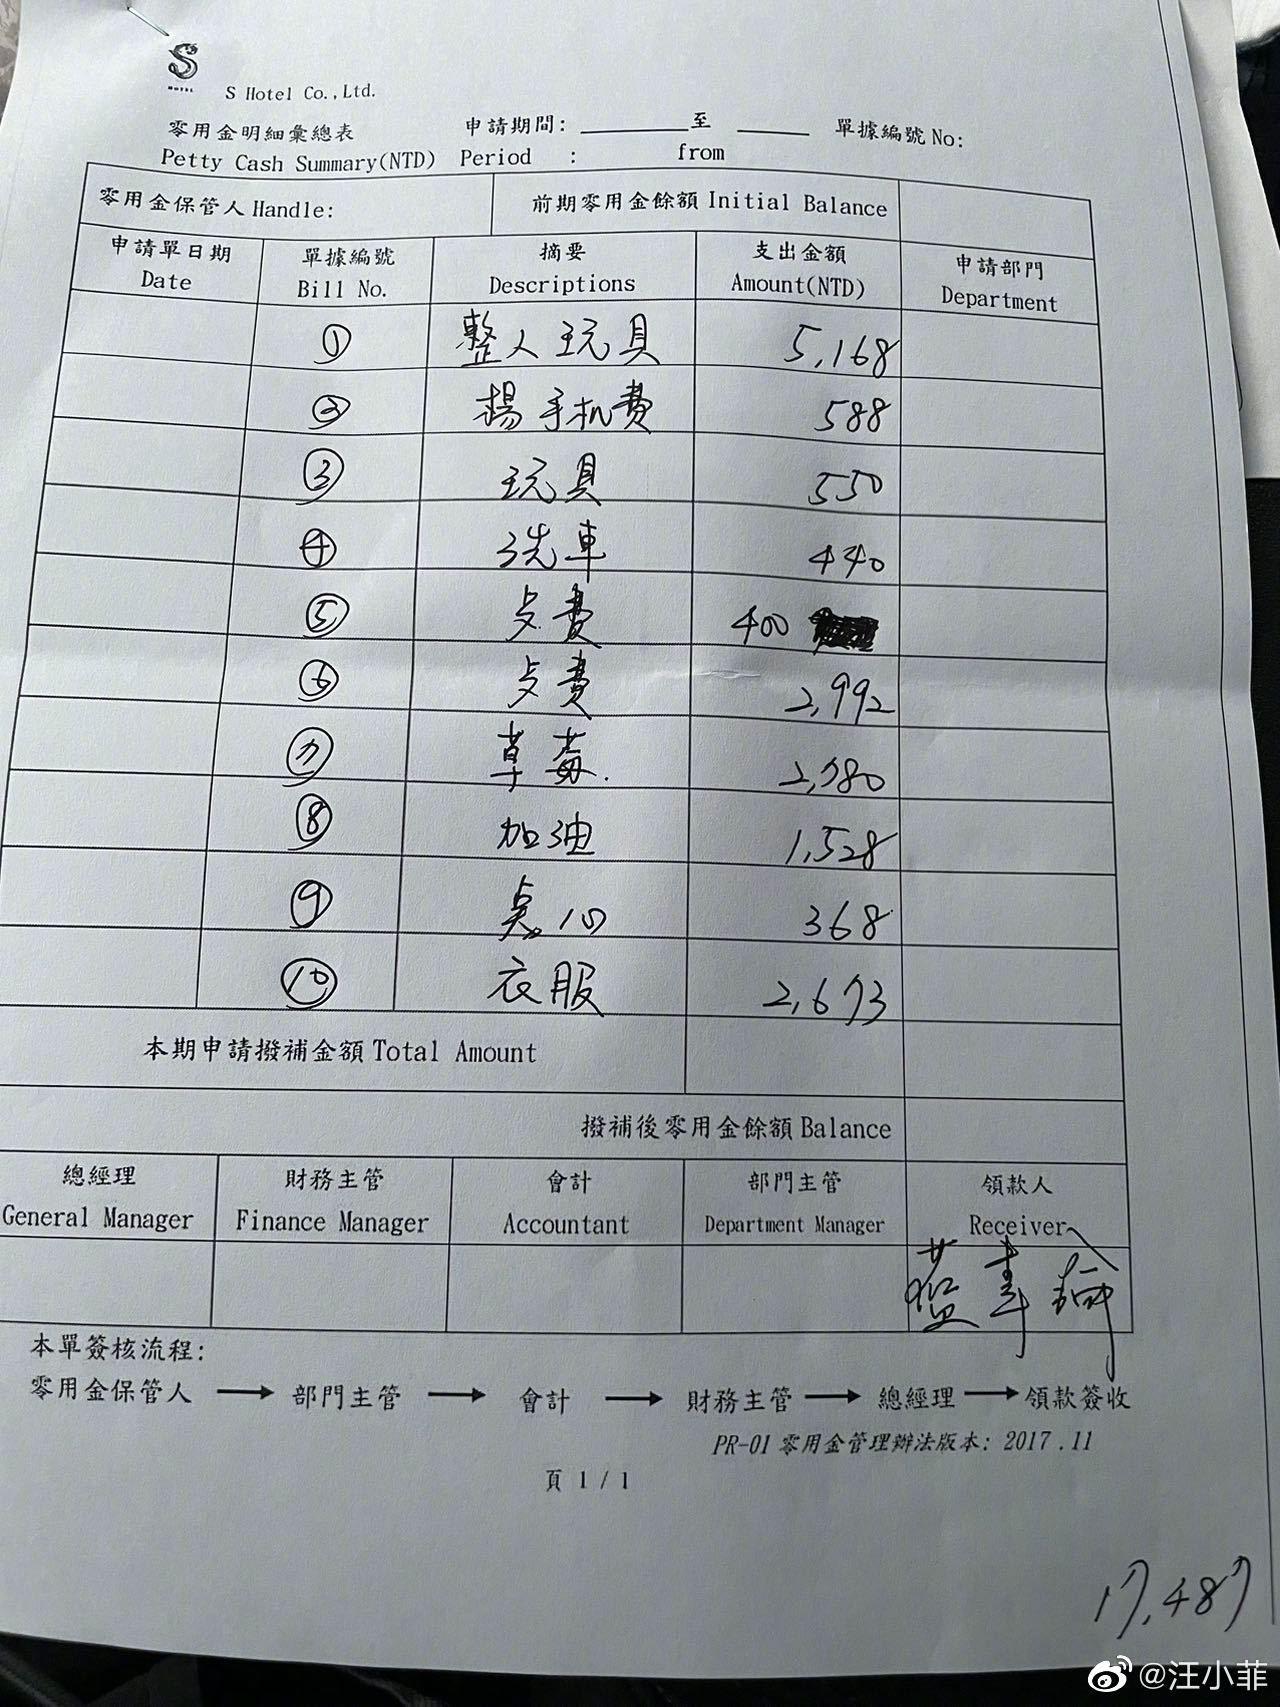 S
HOTEL
S Hotel Co.,Ltd.
零用金明細彙總表 申請期間: 至 單據編號 No:
Petty Cash Summary(NTD) Period : from
零用金保管人 Handle: 前期零用金餘額 Initial Balance
申請單日期 單據編號 摘要 支出金額 申請部門
Date Bill No. Descriptions Amount(NTD) Department
① 整人玩具 5,168
② 楊手机費 588
③ 玩具 550
④ 洗車 440
⑤ 费 400
⑥ 费 2,992
⑦ 草莓. 2,780
⑧ 加油 1,528
⑨ 點心 368
⑩ 衣服 2,673
本期申請撥補金額 Total Amount
撥補後零用金餘額 Balance
總經理 財務主管 會計 部門主管 領款人
General Manager Finance Manager Accountant Department Manager Receiver
藍
本單簽核流程:
零用金保管人 → 部門主管 → 會計 → 財務主管 → 總經理 → 領款簽收
PR-01 零用金管理辦法版本: 2017.11
頁 1 / 1
17,487
@汪小菲